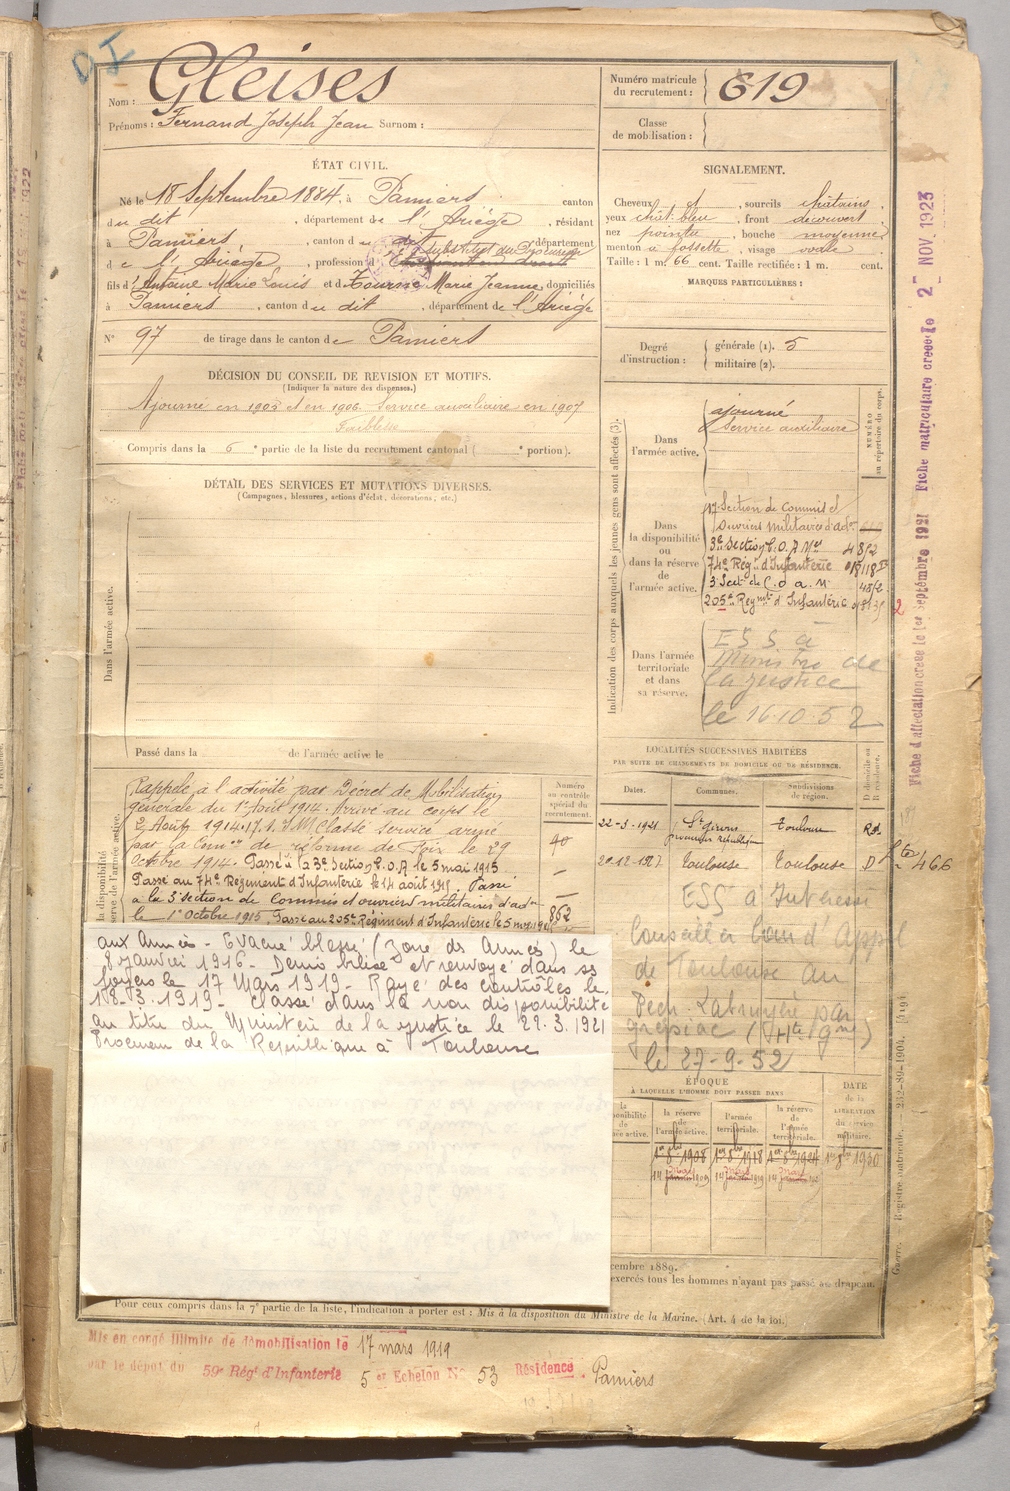 D I
Nom : Gleises
Prénoms : Fernand Joseph Jean Surnom :
Numéro matricule
du recrutement : 619
Classe
de mobilisation :
ÉTAT CIVIL.
Né le 18 Septembre 1884, à Pamiers canton
du dit, département de l'Ariège, résidant
à Pamiers, canton du dit département
Substitut du Procureur
de l'Ariège, profession d'Étudiant en droit
fils d'Antoine Marie Louis et de Tournié Marie Jeanne, domiciliés
à Pamiers, canton du dit, département de l'Ariège
N° 97 de tirage dans le canton de Pamiers
SIGNALEMENT.
Cheveux et, sourcils châtains
yeux chât. bleu, front découvert
nez pointu, bouche moyenne
menton à fossette, visage ovale
Taille : 1 m. 66 cent. Taille rectifiée : 1 m. cent.
MARQUES PARTICULIÈRES :
Degré
d'instruction :
générale (1). 5
militaire (2).
DÉCISION DU CONSEIL DE REVISION ET MOTIFS.
(Indiquer la nature des dispenses.)
Ajourné en 1905 et en 1906. Service auxiliaire en 1907
Faiblesse
Compris dans la 6 e partie de la liste du recrutement cantonal ( e portion).
DÉTAIL DES SERVICES ET MUTATIONS DIVERSES.
(Campagnes, blessures, actions d'éclat, décorations, etc.)
Dans l'armée active.
Passé dans la de l'armée active le
Indication des corps auxquels les jeunes gens sont affectés (3).
NUMÉRO
au répertoire du corps.
Dans
l'armée active.
ajourné
Service auxiliaire
Dans
la disponibilité
ou
dans la réserve
de
l'armée active.
17e Section de Commis et
Ouvriers militaires d'adon
3e Section C.O.A Mre 4852
74e Régt d'Infanterie 018118
3 Sect de C.o a M 4852
205e Regmt d'Infanterie
2
Dans l'armée
territoriale
et dans
sa réserve.
ESS à
Ministre de
la justice
le 16.10.52
Fiche d'affectation créée le 1er Septembre 1921 Fiche matriculaire créée le 2 NOV. 1923
LOCALITÉS SUCCESSIVES HABITÉES
PAR SUITE DE CHANGEMENTS DE DOMICILE OU DE RÉSIDENCE.
Dates. Communes. Subdivisions
de région.
D domicile ou
R résidence.
22-3-1921 St Girons Toulouse Rd
procureur république
20-12-1927 Toulouse Toulouse D
466
ESS à Intéressé
Conseiller Cour d'Appel
de Toulouse au
Pech-Labruyère par
grépiac (Hte Gne)
le 27-9-52
Numéro
au contrôle
spécial du
recrutement.
Rappelé à l'activité par Décret de Mobilisation
générale du 1er Août 1914. Arrivé au corps le
2 Août 1914. Classé service armé
par la Comon de réforme de Foix le 29
Octobre 1914. Passé à la 3e Section C.O.A le 5 mai 1915
Passé au 74e Régiment d'Infanterie le 14 août 1915. Passé
à la 3e section de Commis et ouvriers militaires d'adon
le 1er Octobre 1915. Passé au 205e Régiment d'Infanterie le 5
40
862
aux Armées - Evacué blessé (Zone des Armées) le
8 janvier 1916 - Démobilisé et renvoyé dans ses
foyers le 17 Mars 1919 - Rayé des contrôles le
18-3-1919 - Classé dans la non disponibilité
au titre du Ministère de la Justice le 29.3.1921
Procureur de la République à Toulouse
ÉPOQUE
À LAQUELLE L'HOMME DOIT PASSER DANS
DATE
de la
LIBÉRATION
du service
militaire.
la réserve
de
l'armée active.
l'armée
territoriale.
la réserve
de
l'armée
territoriale.
1er 8bre 1908 1er 8bre 1918 1er 8bre 1924 1er 8bre 1930
cembre 1889.
exercés tous les hommes n'ayant pas passé au drapeau.
Pour ceux compris dans la 7e partie de la liste, l'indication à porter est : Mis à la disposition du Ministre de la Marine. (Art. 4 de la loi.)
Guerre. — Registre matricule. — 232-89-1904. [4194]
Mis en congé illimité de démobilisation le 17 mars 1919
par le dépôt du 59e Régt d'Infanterie 5 er Echelon N° 53 Résidence Pamiers